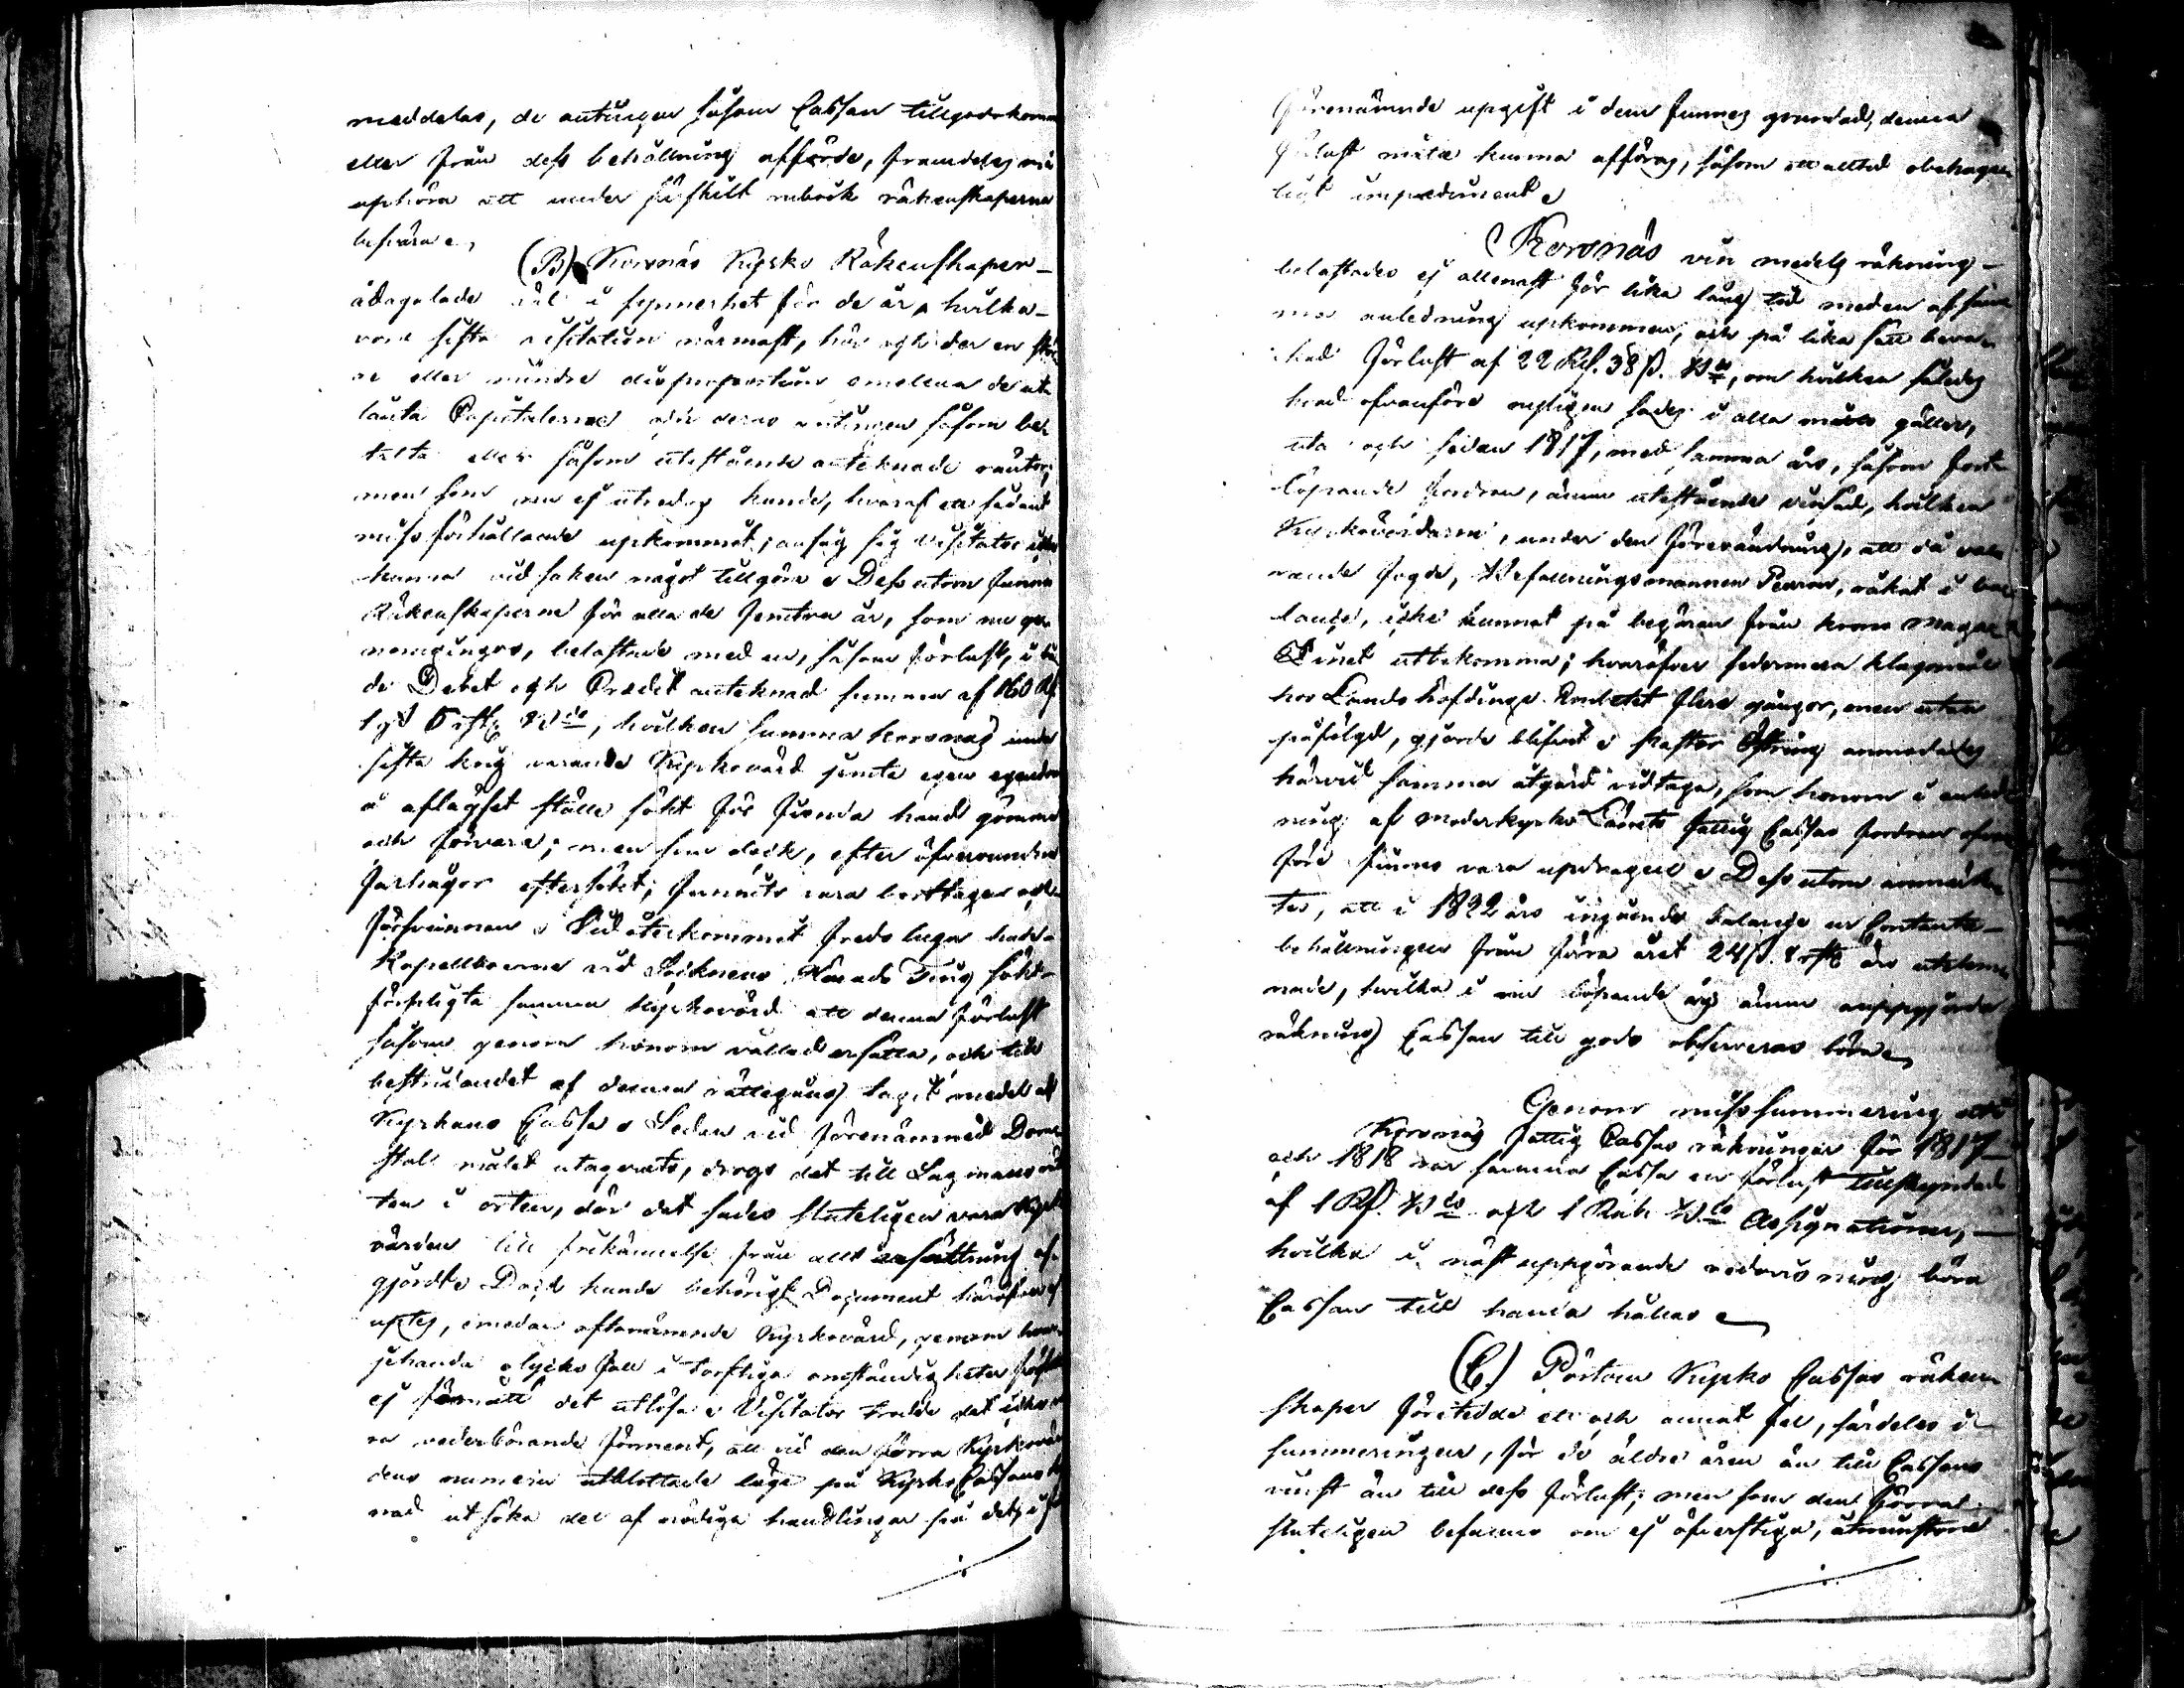 meddelas, de antingen såsom Cassan tillgodokomm
eller från dess behållning afförde, framdeles må
uphöra att under särskilt rubrick räkenskaperne
besvära.
(B) Korsnäs Kyrko Räkenskaper
ådagalade väl i synnerhet för de år, hvilka
vore sista visitation närmast, här och der en stör
re eller mindre disproportion emellan de ut-
lånta Capitalerne och deras antingen såsom be-
talta eller såsom utestående anteknade räntor;
men som nu ej utredas kunde, hvaraf ett sådant
missförhållande upkommit, ansåg sig Visitator icke
kunna vid saken något tillgöra. Dessutom funnos
Räkenskaperne för alla de femton år, som nu ge-
nomgingos, belastade med en, såsom förlust, i bå
de Debet och Credit anteknad summa af 160 Rd
1 ß 6 rst. Bco, hvilken summa Korsnäs under
sista krig varande Kyrkovärd jemte egen egendom
å aflägset ställe sökt för fienda hand gömma
och förvara; men som dock, efter öfverståndna
farhågor eftersökt, funnits vara borttagen och
försvunnen. Vid återkommit freds lugn hade
Kapellboerne vid Socknens Härads Ting sökt
förpligta samma Kyrkovärd att denna förlust
såsom genom honom vållad ersätta, och till
bestridandet af denna rättegång tagit medel af
Kyrkans Cassa. Sedan vid förenämnd Dom-
stol målet utagerats, drogs det till Lagmansrät
ten i orten, där det sades sluteligen vara Kyrko
värden till frikännelse från all ersättning af-
gjordt. Dock kunde behörigt Document häröfver ej
uptes, emedan oftanämnde Kyrkovärd, genom hvar
jehanda olycksfall i torftiga omständigheter försatt
ej förmått det utlösa. Visitator trodde det icke va
ra vederbörande förment, att vid den förra Kyrkovär
dens numera utblottade läge på Kyrko Cassans kost
nad utsöka del af nödiga handlingar på det, i fall
förenämnde upgift i dem finnes grundad, denna
förlust måtte kunna afföras, såsom ett alltid obehage-
ligt impediment.
Korsnäs vin medels räkning
belastades ej allenast för lika lång tid med en af sam
ma anledning upkommen, och på lika sätt bevan
had förlust af 22 Rd. 38 ß. Bco, om hvilken således
hvad ofvanföre nyligen sades i alla måtto gäller,
utan och sedan 1817, med samma års, såsom fort
löpande fordran, ännu utestående vinsäd, hvilken
Kyrkovärdarne, under den förevändning, att då vara
rande fogde, Befallningsmannen Pearon, råkat i ba-
lance, icke kunnat på begäran från krono Maga-
zinet utbekomma; hvaröfver sedermera klagomål
hos Landshöfdinge Embetet flere gånger, men utan
påföljd, gjorde blifvit. Pastor Östring anmodades
härvid samma åtgärd vidtaga, som honom i anled
ning af Moderkyrko Länets fattig Cassas fordran ofvan
före finnes vara updragen. Dessutom anmärk
tes, att i 1822 års ingående balance en Contant-
behållningen från förra året 24 ß. 8 rst. äro utelem-
nade, hvilka i nu löpande års ännu ouppgjorda
räkning Cassan till godo observeras böra.
Genom misssummering uti
Korsnäs fattig Cassas räkningar för 1817
och 1818 var samma Cassa en förlust tillskyndad
af 1 Rd. Bco och 1 Rub. Bco Assignationer,
hvilka i näst uppgörande redovisning böra
Cassan till handa hållas.
(C.) Pörtom Kyrko Cassas räken
skaper företedde ett och annat fel, särdeles i
summeringen, för de äldre åren än till Cassans
vinst än till dess förlust; men som den förra
sluteligen befanns om ej öfverstiga, åtminstone